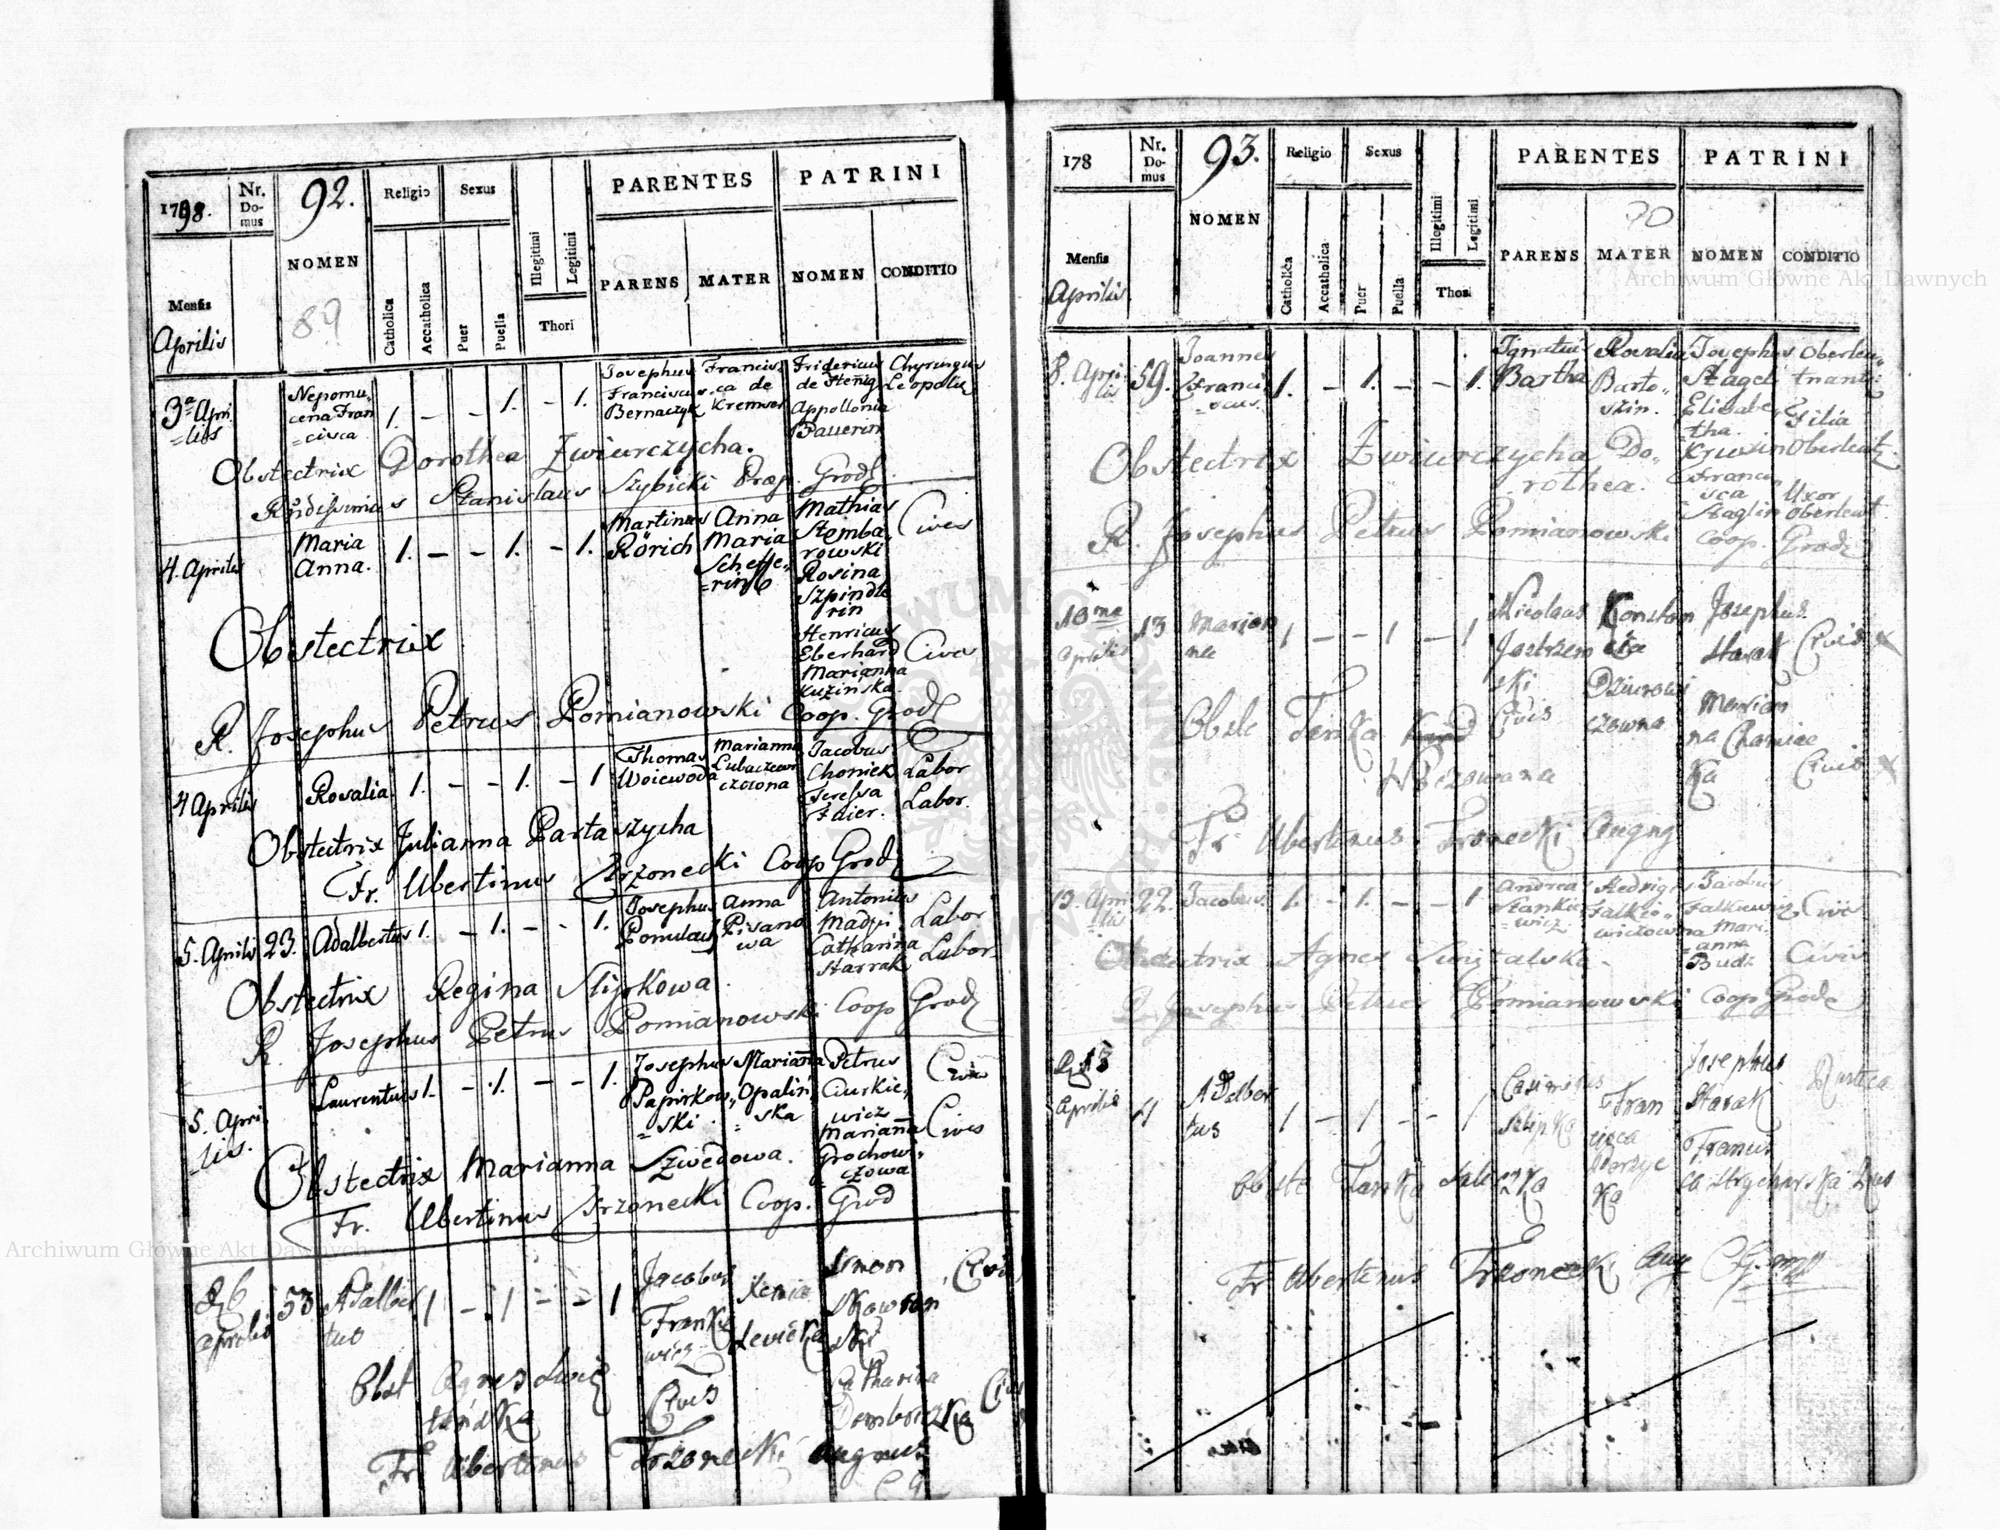 1798.
Nr. Domus
92.
NOMEN
89
Religio
Sexus
Catholica
Accatholica
Puer
Puella
Illegitimi
Legitimi
Thori
PARENTES
PARENS
MATER
PATRINI
NOMEN
CONDITIO
Mensis
Aprilis
3a Apri
=lis
Nepomu=
cena Fran
=cisca
1. - - 1. - 1.
Josephus
Franciscus
Bernaczyk
Francis=
ca de
Kremser
Fridericus
de Stenig
Appollonia
Pauerin
Chyrurgus
Leopolis
Obstectrix Dorothea Zwiurczycha.
Stanislaus Szybicki Præp. Grod
4. Aprilis
Maria
Anna.
1. - - 1. - 1.
Martinus
Rörich
Anna
Maria
Scheffe=
=rin
Mathias
Stemba=
rowski
Rosina
Szpindle
rin
Henricus
Eberhard
Marianna
Kuzinska.
Cives
Cives
Obstectrix
R. Josephus Petrus Pomianowski Coop. Grod
4 Aprilis
Rosalia
1. - - 1. - 1
Thomas
Woiewoda
Marianna
Lubaczew
czowna
Jacobus
Choniek
Teressa
Faier.
Labor
Labor.
Obstectrix Julianna Partaszycha
Fr. Ubertinus Trzonecki Coop Grod
5. Aprilis 23.
Adalbertus
1. - 1. - - 1.
Josephus
Anna
Pisano
wa
Antonius
Madzi
Catharina
Starrak
Labor
Labor
Obstectrix Regina Slipkowa.
R. Josephus Petrus Pomianowski Coop Grod
5. Apri
lis.
Laurentius
1. - 1. - - 1.
Josephus
Papirkow=
=ski
Marianna
Opalin=
=ska
Petrus
Ciurkie=
wicz
Marianna
Grochow=
czowa
Cives
Cives
Obstectrix Marianna Szwedowa.
Fr. Ubertinus Trzonecki Coop. Grod
D 6
Aprilis
53
Adalber
tus
1 - 1 - - 1
Jacobus
Franke
wicz
Civis
Xenia
Levicka
Simon
Skowron
ski
Catharina
Civis
Obst Agnes Swię
talska
Fr Ubertinus Trzonecki
178
Nr. Domus
93.
NOMEN
Religio
Sexus
Catholica
Accatholica
Puer
Puella
Illegitimi
Legitimi
Thori
PARENTES
90
PARENS
MATER
PATRINI
NOMEN
CONDITIO
Mensis
Aprilis
8. Apri
lis
59.
Joannes
Franci=
=scus.
1. - 1. - - 1.
Ignatius
Bartha
Rosalia
Barto=
szin.
Josephus
Stagel
Elisabe=
tha.
Krussin
Francis
sca
Staglin
Oberleu=
tnant
Filia
Oberleut
Uxor
Oberleut
Obstectrix Zwiurczycha Do=
rothea.
R. Josephus Petrus Pomianowski Coop. Grod
10ma
Aprilis
13
Marian
na
1 - - 1 - 1
Nicolaus
Jastrzem
ski
Civis
Konstan
cia
Dziurowi
czowna
Josephus
Starak
Marian
na Chaniec
ka
Civis x
Civis x
Obste Tenka
Fr Ubertinus Trzonecki
13. Apri
lis
22.
Jacobus
1. - 1. - - 1
Andreas
Stankie
=wicz
Hedvigis
Falkie=
wiczowna
Jacobus
Falkiewicz
Mari=
anna
Budz
Civis
Civis
Obstectrix Agnes Swiętalska.
R. Josephus Petrus Pomianowski Coop Grod
D 13
Aprilis
4
Adalber
tus
1 - 1 - - 1
Casimirus
Slipka
Fran
cisca
Josephus
Starak
Francis
ca Strycharska
Rustica
Rus
Fr Ubertinus Trzonecki
Archiwum Główne Akt Dawnych
Archiwum Główne Akt Dawnych